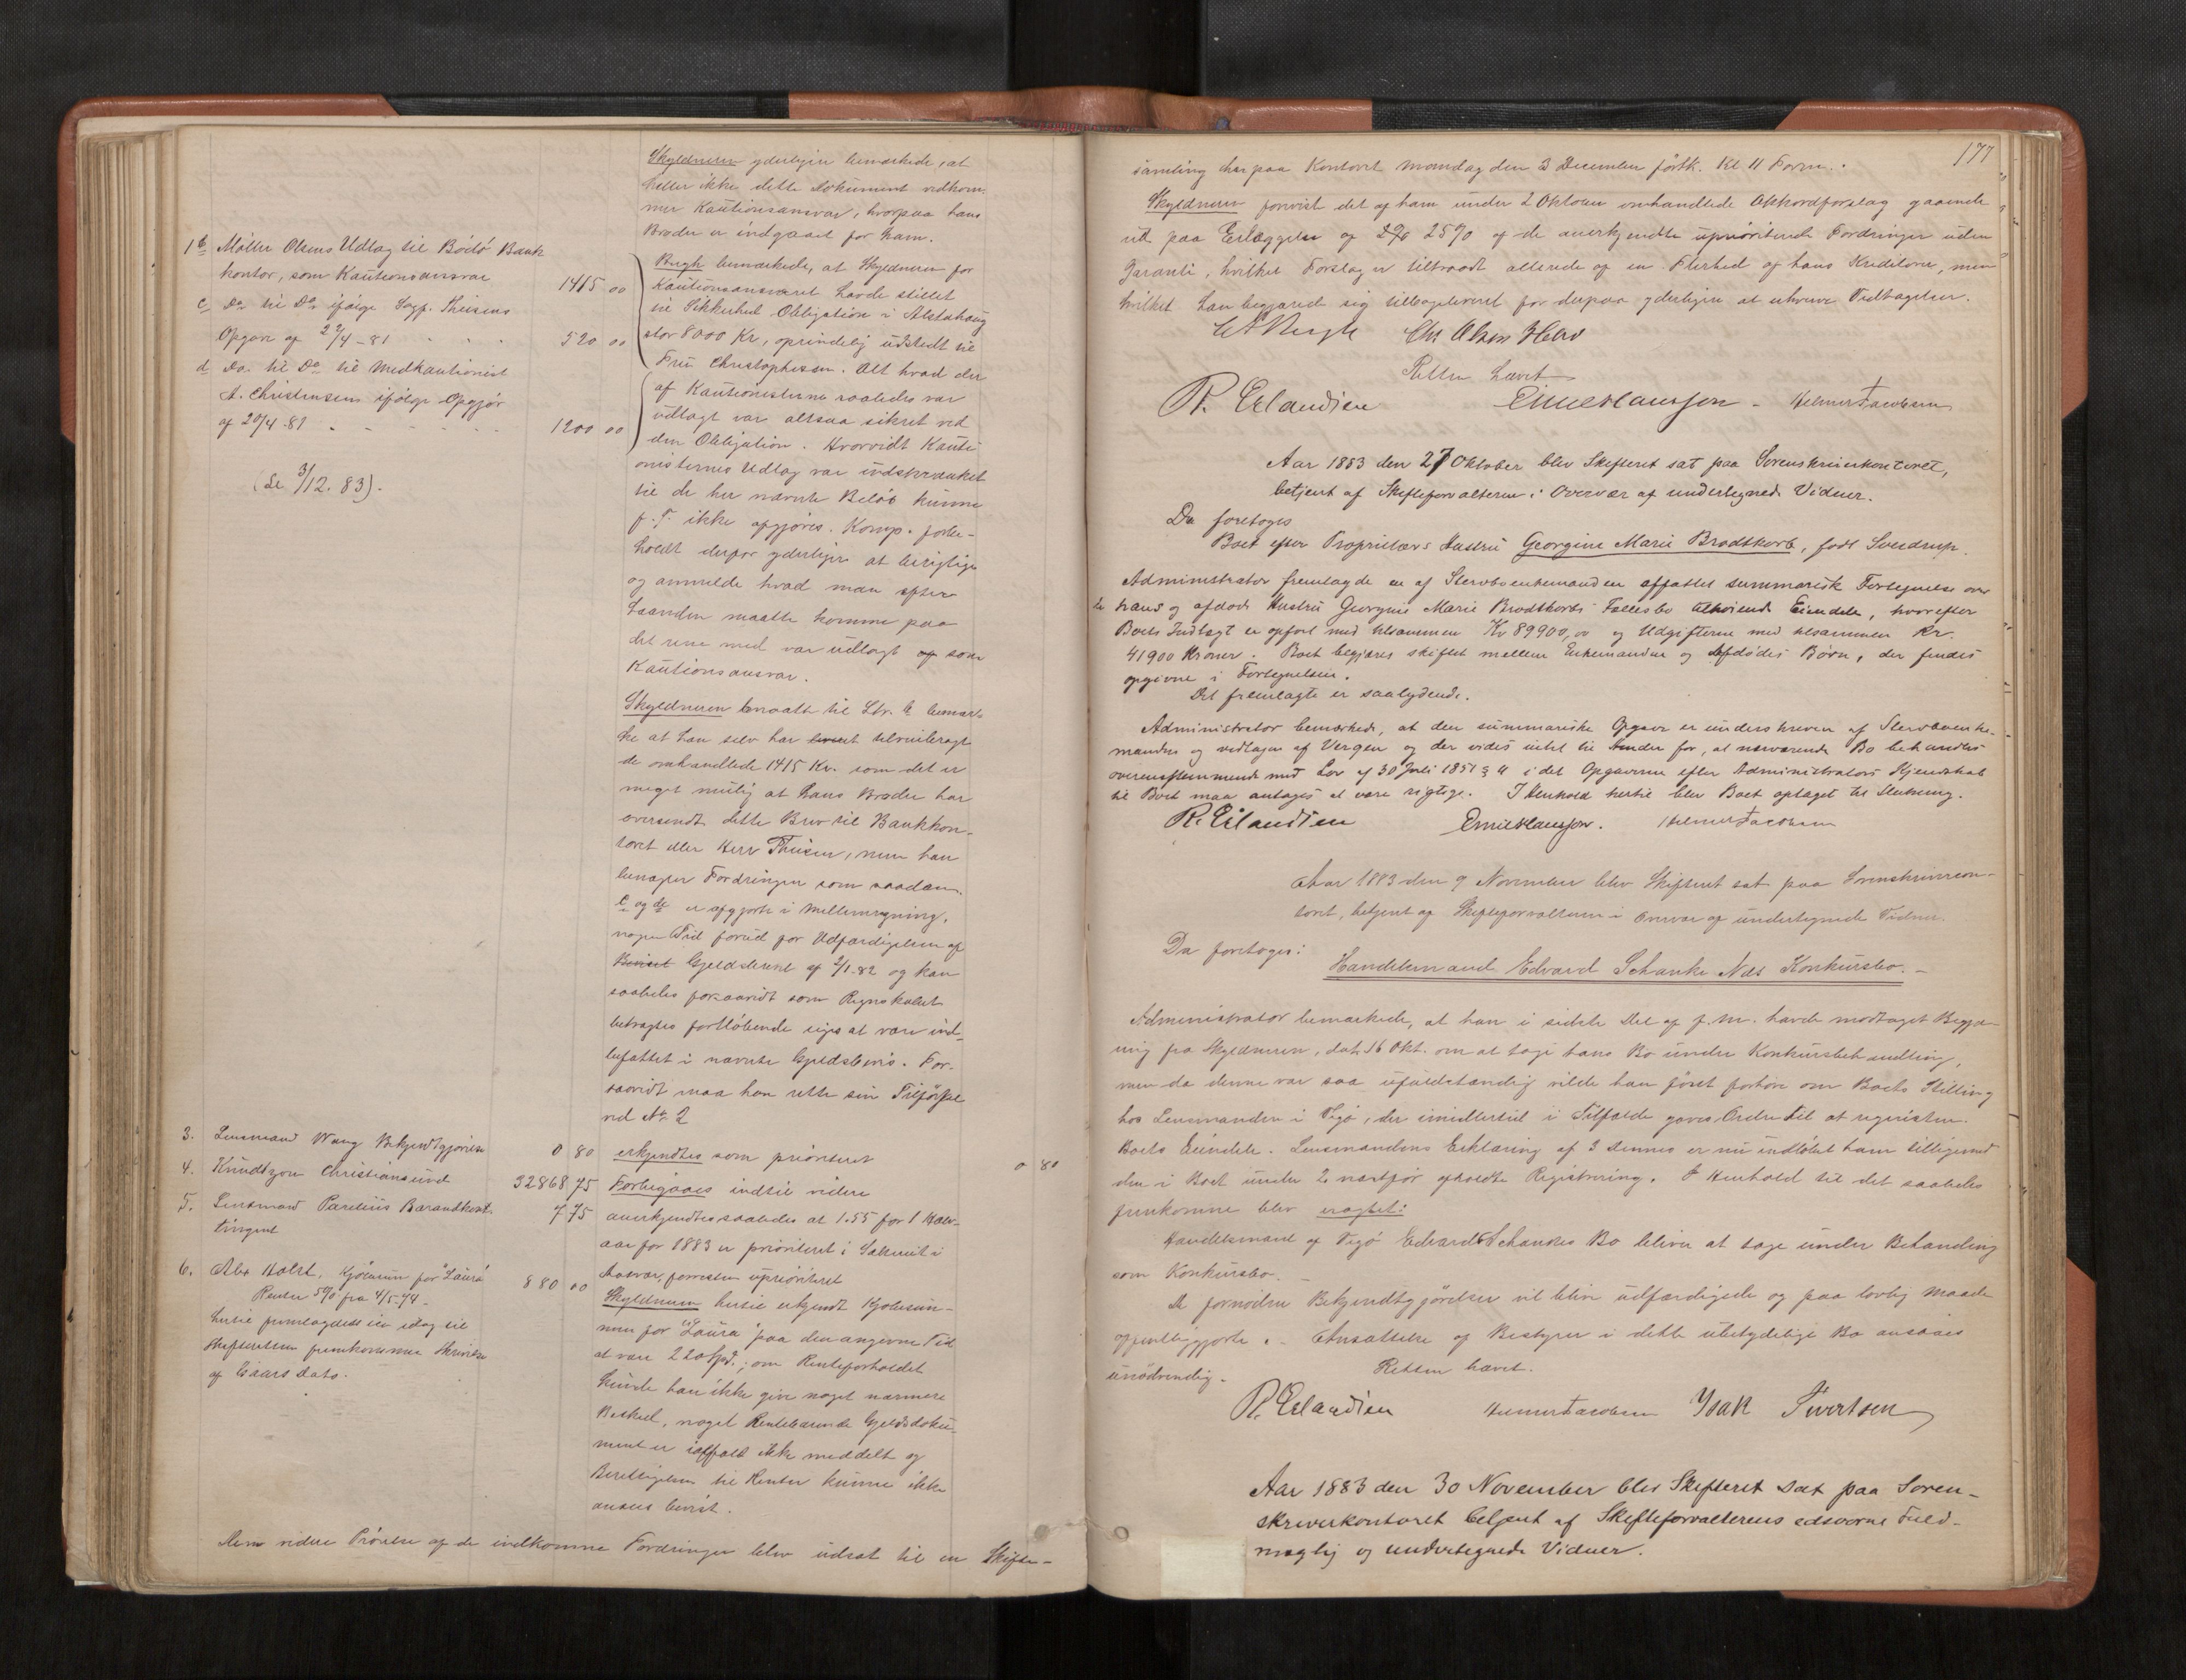 Skyldneren yderligere bemærkede, at
heller ikke dette Dokument vedkom-
mer Kautionsansvar, hvorpaa hans
Broder er indgaaet for ham.
1 b Møller Olsens Udlæg til Bodø Bank
kontor, som Kautionsansvar 1415 00
c Do til Do ifølge Sagf. Theisens
Opgave af 29/4-81 520 00
d Do. til Do til Medkautionist
A. Christensen ifølge Opgjør
af 20/4-81 1200 00
(se 3/12. 83).
Bergh bemærkede, at Skyldneren for
Kautionsansvaret havde stillet
sin Sikkerhed Obligation i Alstahaug
stor 8000 Kr, oprindelig udstedt til
Fru Christophersen. Alt hvad der
af Kautionisterne saaledes var
udlagt var altsaa sikret ved
den Obligation. Hvorvidt Kauti-
onisternes Udlæg var indskrænket
til de her nævnte Beløb kunne
p. T. ikke opgjøres. Komp. forbe-
holdt derfor yderligere at berigtige
og anmelde hvad man efter-
haanden maatte komme paa
det rene med var udlagt som
Kautionsansvar.
Skyldneren maatte til Ltr. b bemær-
ke at han selv har tilveiebragt
de omhandlede 1415 Kr. som det er
meget mulig at hans Broder har
oversendt dette Brev til Bankkon-
toret eller Herr Theisen, men han
benægter Fordringen som saadan.
c og d er opgjorte i Mellemregning,
nogen Tid forud for Udfærdigelsen af
Beviset Gjeldsbeviset af 2/1.82 og kan
saaledes forsaavidt som Regnskabet
betragtes fortløbende siges at være ind-
befattet i nævnte Gjeldsbevis. For-
saavidt maa han rette sin Tilførsel
ved No 2
3. Lensmand Wang Bekjendtgjørelse 0 80 erkjendtes som prioriteret 0 80
4. Knudtzon Christiansund 32868 75 Forbigaaes indtil videre
5. Lensmand Parelius Barandkont-
tingent 7 75 anerkjendtes saaledes at 1.55 for 1 Halv-
aar for 1883 er prioriteret i
forresten uprioriteret
6. Abr Holst, Kjøbesum for "Laura" 880 00
Renter 5% fra 4/5-74-
hertil fremlagdes en idag til
Skifteretten fremkommen Skrivelse
af Gaars Dato.
Skyldneren hertil erkjendt Kjøbesum-
men for "Laura" paa den angivne Tid
at være 220 Spd.; om Renteforholdet
kunde han ikke give noget nærmere
Besked, noget Rentebærende Gjeldsdoku-
ment er ialfald ikke meddelt og
Berettigelsen til Renter kunne ikke
ansees bevist.
videre Prøvelse af de indkomne Fordringer blev udsat til en Skifte-
177
samling her paa Kontoret Mandag den 3 December førstk. Kl 11 Form.
Skyldneren foreviste det af ham under 2 Oktober omhandlede Akkordforslag gaaende
ud paa Erlæggelse af 25% af de anerkjendte uprioriterede Fordringer uden
Garanti, hvilket Forslag er tiltraadt allerede af en Flerhed af hans Kreditorer, men
hvilket han begjærede sig tilbageleveret for derpaa yderligere at erhverve Vedtagelser.
Bergh Chr Olsen
Retten hævet
R. Erlandsen Emil Hansson - Helmer Jacobsen
Aar 1883 den 27 Oktober blev Skifteret sat paa Sorenskriverkontoret,
betjent af Skifteforvalteren i Overvær af undertegnede Vidner.
Da foretoges
Boet efter Proprietærs Hustru Georgine Marie Brodtkorb, født Sverdrup.
Administrator fremlagde en af Stervboenkemanden affattet summarisk Fortegnelse over
hans og afdøde Hustru Georgine Marie Brodtkorbs Fællesbo tilhørende Eiendele, hvorefter
Boets Indtægt er opført med tilsammen Kr 89900,00 og Udgifterne med tilsammen Kr.
41900 Kroner. Boet begjæres skiftet mellem Enkemanden og Afdødes Børn, der findes
opgivne i Fortegnelsen.
Det fremlagte er saalydende.
Administrator bemærkede, at den summariske Opgave er underskreven af Stervboenke-
manden og vedtagen af Vergen og der vides intet til Hinder for, at nærværende Bo behandles
overensstemmende med Lov af 30 Juli 1851 § 4 idet Opgaverne efter Administrators Kjendskab
til Boet maa antages at være rigtige. I Henhold hertil blev Boet optaget til Slutning.
R. Erlandsen Emil Hansson. Helmer Jacobsen
Aar 1883 den 9 November blev Skifteret sat paa Sorenskriverkon-
toret, betjent af Skifteforvalteren i Overvær af undertegnede Vidner.
Da foretoges:
Handelsmand Edvard Schanke Næs Konkursbo. -
Administrator bemærkede, at han i sidste Del af f. M. havde modtaget Begjæ-
ring fra Skyldneren, dat. 16 Okt. om at tage hans Bo under Konkursbehandling,
men da denne var saa ufuldstændig vilde han først forhøre om Boets Stilling
hos Lensmanden i Vegø, der imidlertid i Tilfælde gaves Ordre til at registrere
Boets Eiendele. Lensmandens Erklæring af 3 dennes er nu indløbet ham tilligemed
den i Boet under 2 næstfør afholdte Registrering. I Henhold til det saaledes
fremkomne blev eragtet:
Handelsmand af Vegø Edvard Schankes Bo bliver at tage under Behandling
som Konkursbo. -
De fornødne Bekjendtgjørelser vil blive udfærdigede og paa lovlig Maade
offentliggjorte. - Ansættelse af Bestyrer i dette ubetydelige Bo ansaaes
unødvendig. - Retten hævet.
R. Erlandsen Helmer Jacobsen Isak Sivertsen
Aar 1883 den 30 November blev Skifteret sat paa Soren-
skriverkontoret betjent af Skifteforvalterens edsvorne Fuld-
mægtig og undertegnede Vidner.